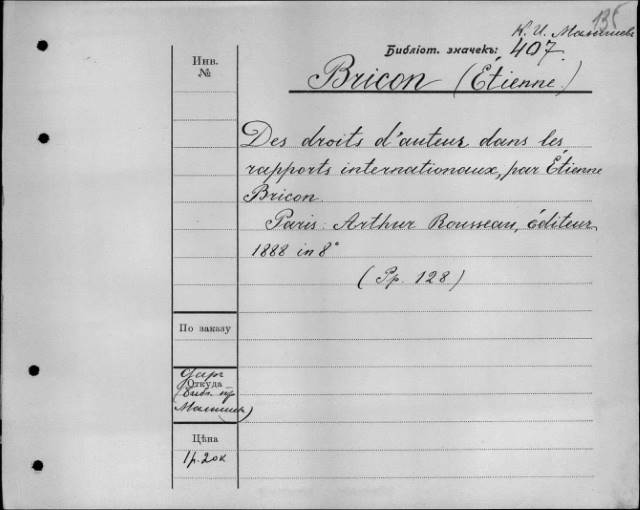 135
К. И. Малышев
Библіот. значекъ: 407.
Инв.
№
Bricon (Étienne)
Des droits d'auteur dans les
rapports internationaux, par Étienne
Bricon.
Paris. Arthur Rousseau, éditeur,
1888 in 8°
(Pp. 128)
По заказу
даръ
Откуда
(Библ. пр.
Малышев)
Цѣна
1 р. 20 к